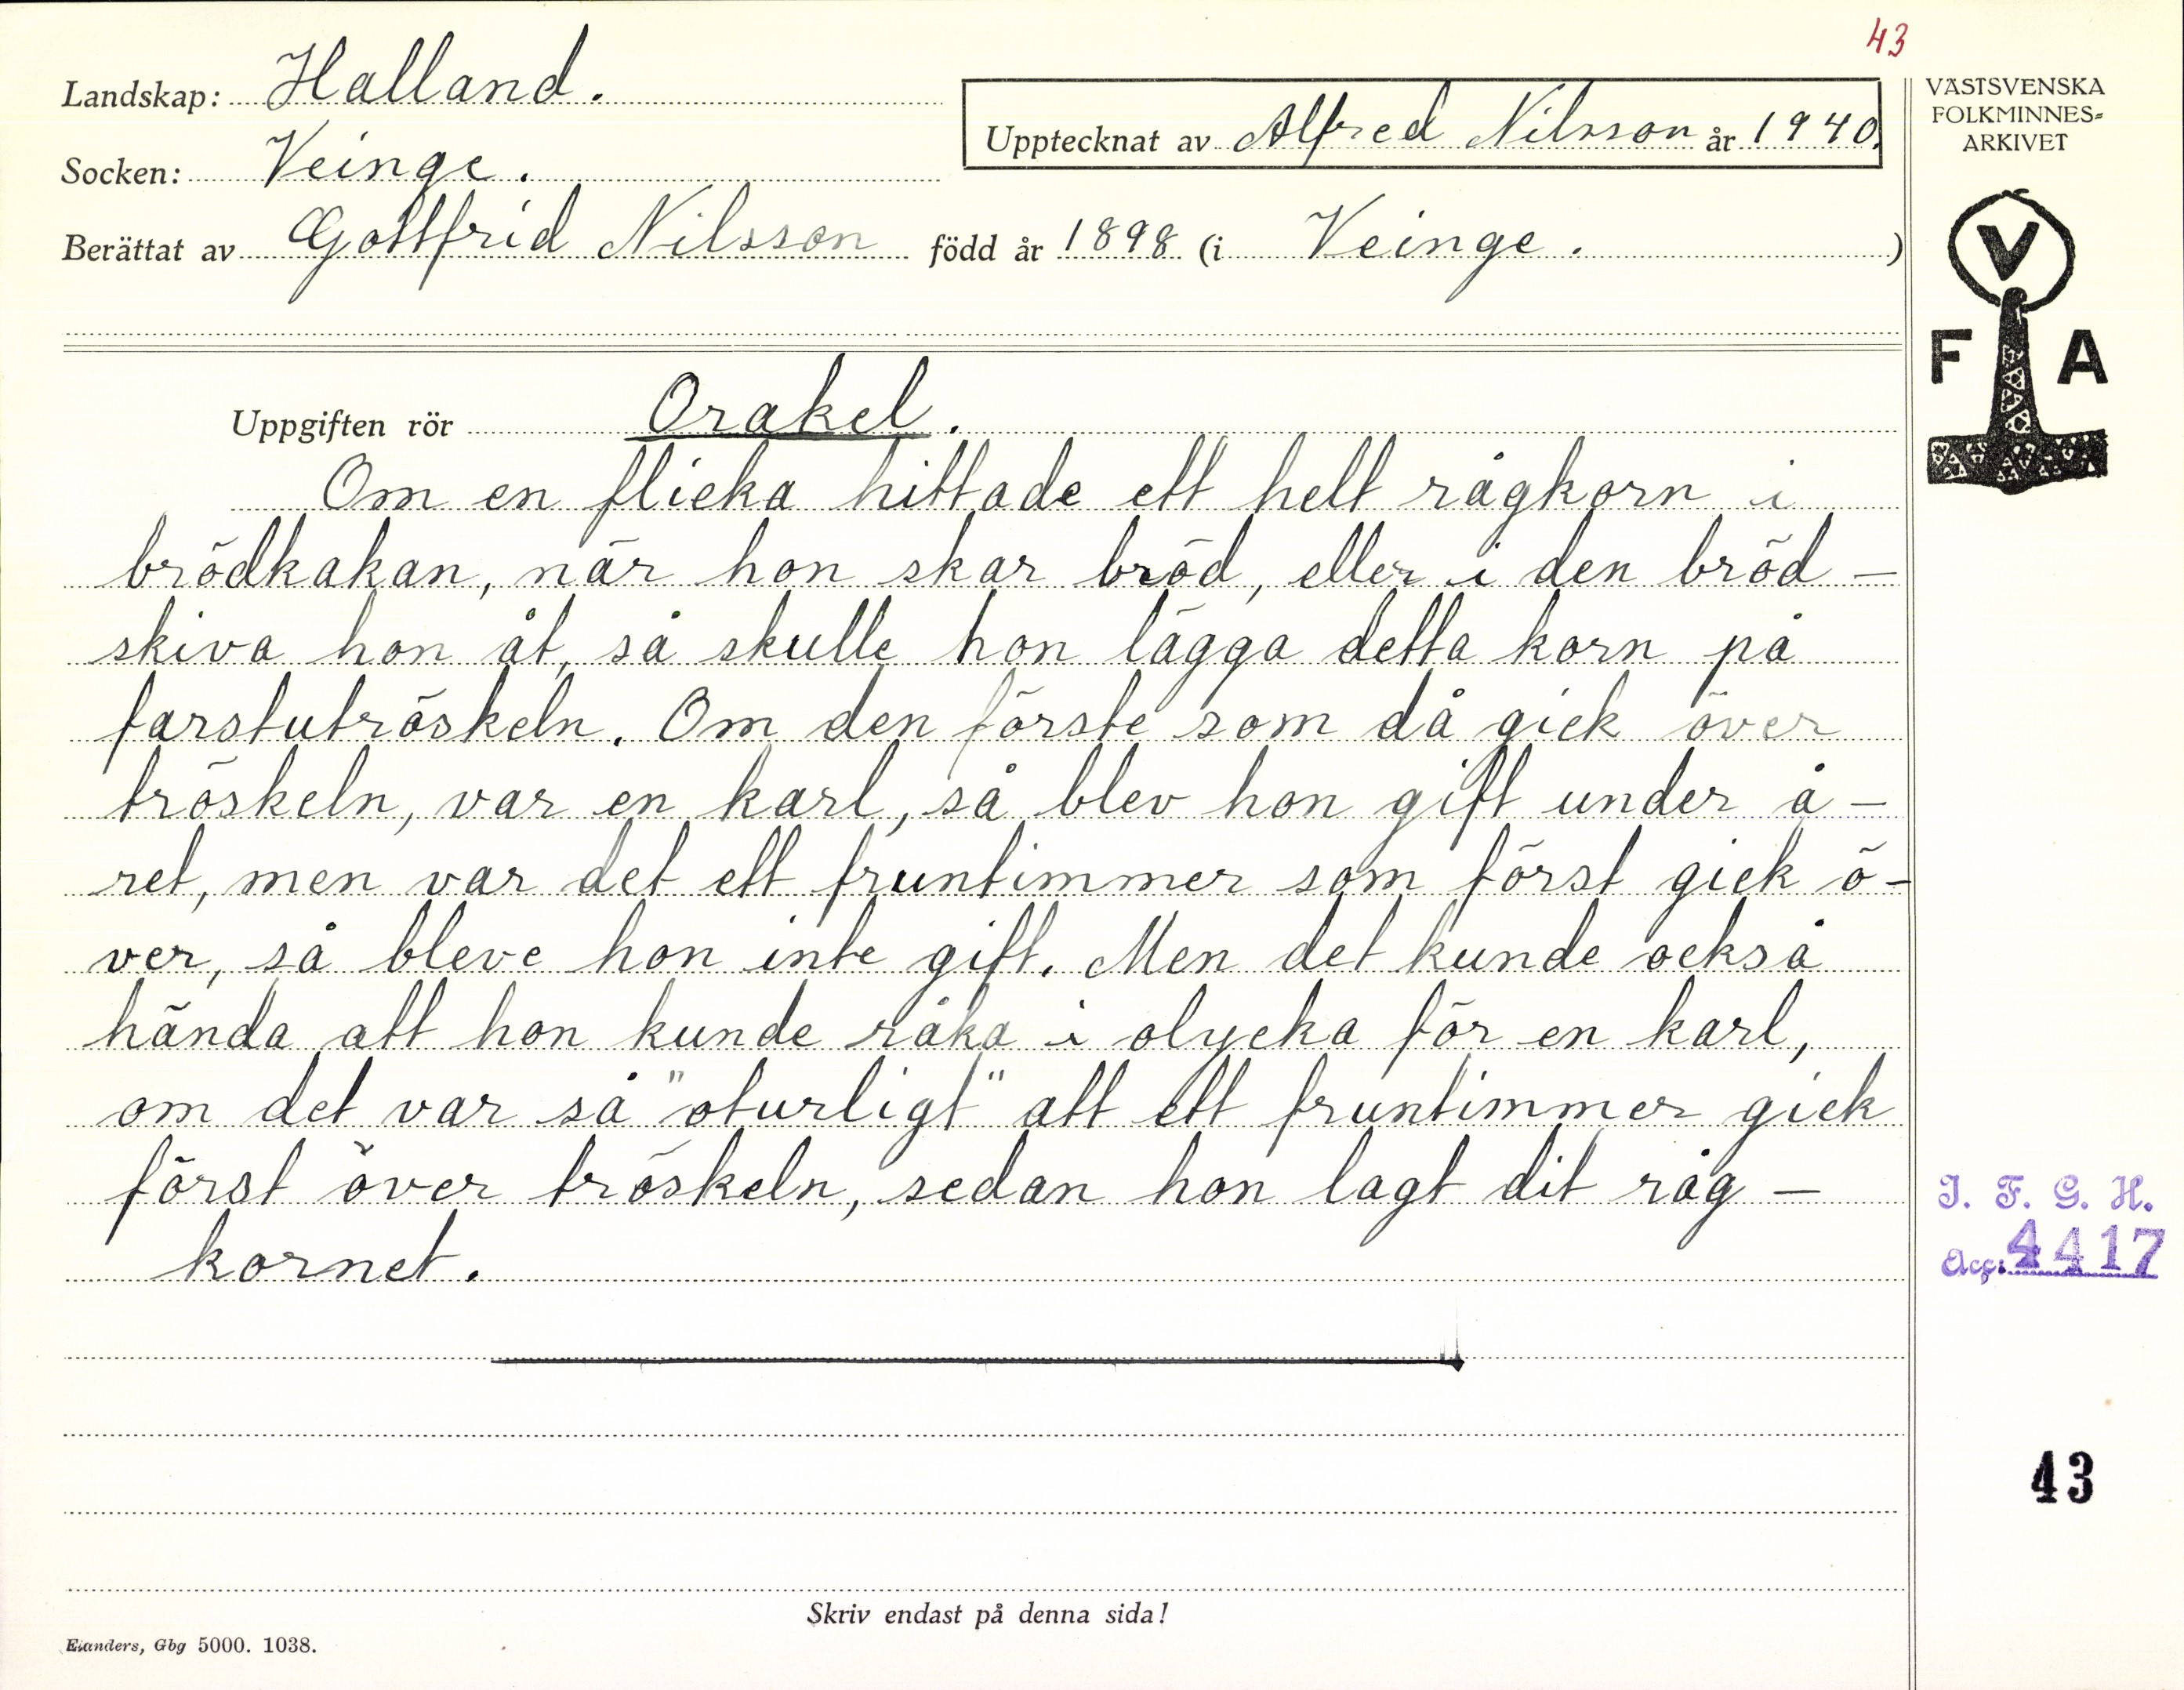 43
Landskap: Halland.
Upptecknat av Alfred Nilsson år 1940.
Socken: Veinge.
Berättat av Gottfrid Nilsson född år 1898 (i Veinge. )
VÄSTSVENSKA
FOLKMINNES-
ARKIVET
V
F A
Uppgiften rör Orakel.
Om en flicka hittade ett helt rågkorn i
brödkakan, när hon skar bröd, eller i den bröd-
skiva hon åt, så skulle hon lägga detta korn på
farstutröskeln. Om den förste som då gick över
tröskeln, var en karl, så blev hon gift under å-
ret, men var det ett fruntimmer som först gick ö-
ver, så bleve hon inte gift. Men det kunde också
hända att hon kunde råka i olycka för en karl,
om det var så "oturligt" att ett fruntimmer gick
först över tröskeln, sedan hon lagt dit råg-
kornet.
I. F. G. H.
Acc: 4417
43
Skriv endast på denna sida!
Elanders, Gbg 5000. 1038.